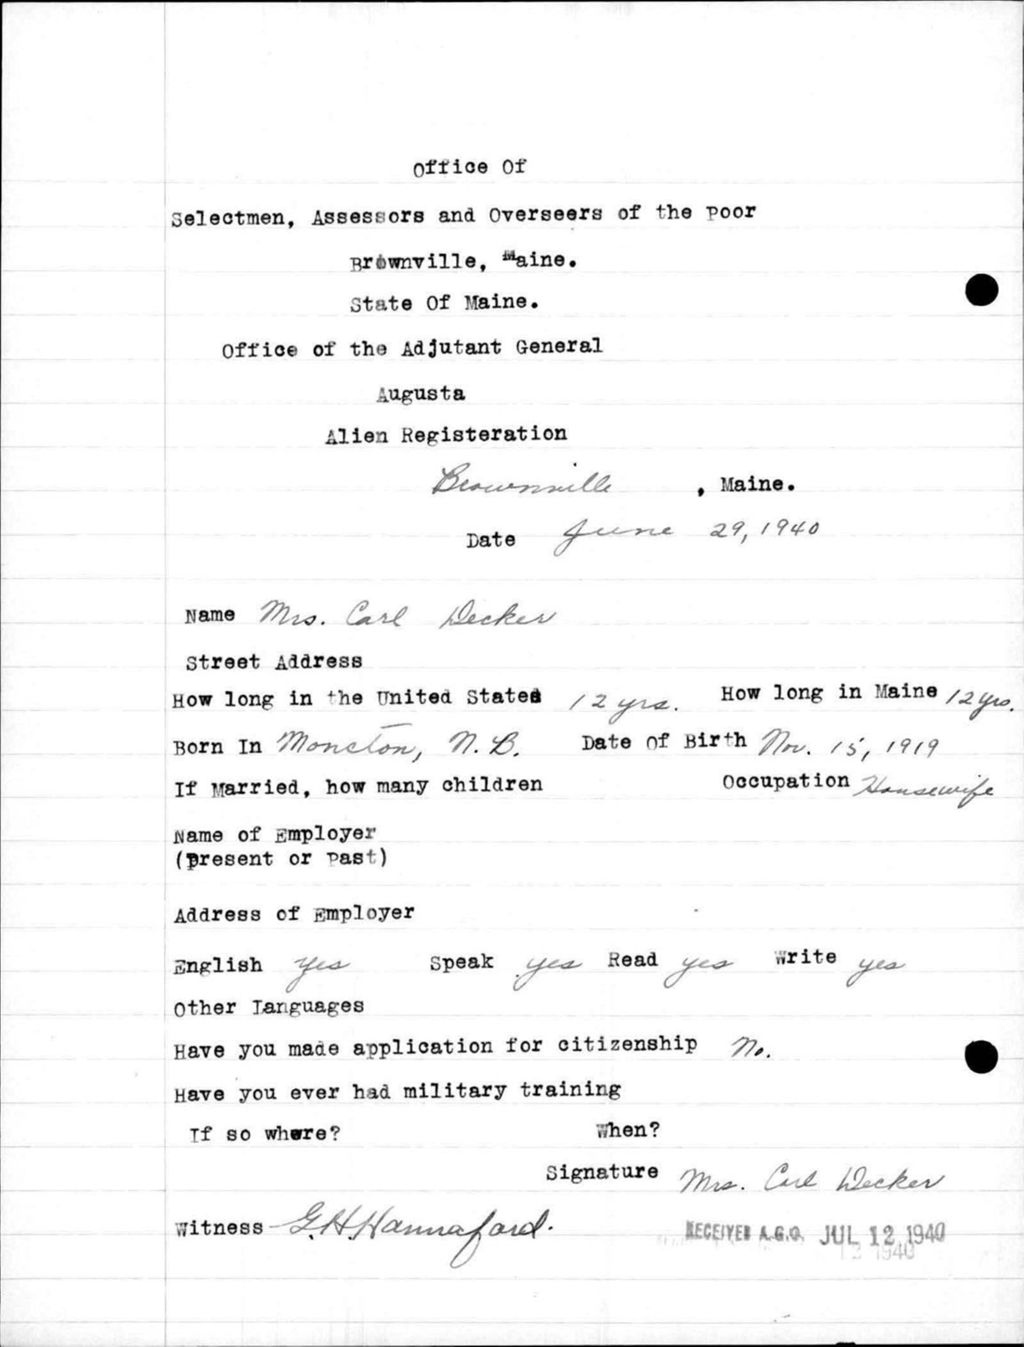 Office Of
Selectmen, Assessors and Overseers of the Poor
Brownville, Maine.
State Of Maine.
Office of the Adjutant General
Augusta
Alien Registeration
Brownville , Maine.
Date June 29, 1940
Name Mrs. Carl Decker
Street Address
How long in the United States 12 yrs. How long in Maine 12 yrs.
Born In Moncton, N. B. Date Of Birth Nov. 15, 1919
If Married, how many children Occupation Housewife
Name of Employer
(Present or Past)
Address of Employer
English Yes Speak yes Read yes Write yes
Other Languages
Have you made application for citizenship No.
Have you ever had military training
If so where? When?
Signature Mrs. Carl Decker
Witness G. H. Hannaford.
RECEIVED A.G.O. JUL 12 1940
12 1940